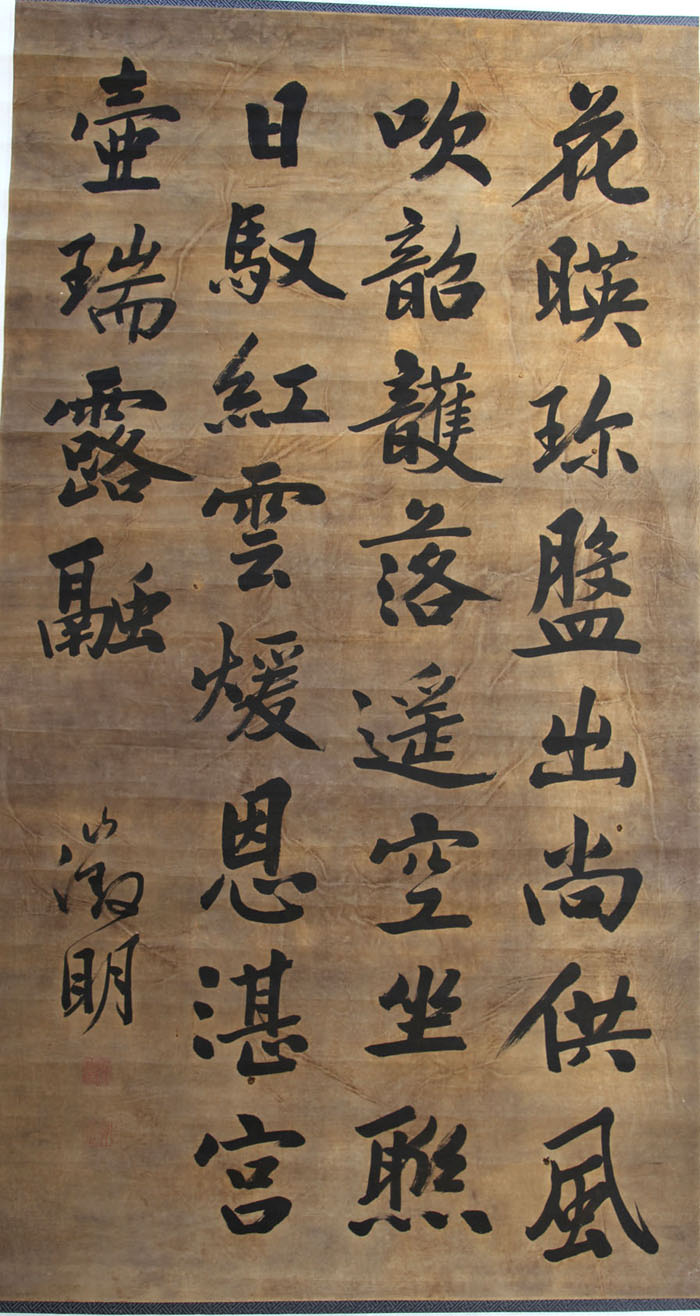 花暎珎盤出尚供風
吹韶頀落遥空坐聮
日馭紅雲煖恩湛宫
壷瑞露融
徵明